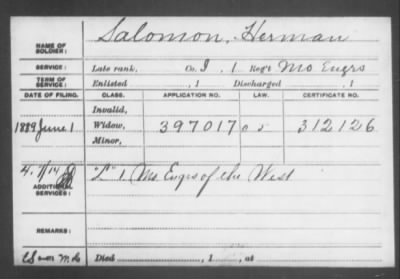 NAME OF SOLDIER: Salomon, Herman
SERVICE: Late rank, Co. I, 1 Reg't Mo Engrs
TERM OF SERVICE: Enlisted , 1 Discharged , 1
DATE OF FILING. CLASS. APPLICATION NO. LAW. CERTIFICATE NO.
Invalid,
1889 June 1 Widow, 397017 312126
Minor,
ADDITIONAL SERVICES: "L" 1. Mo. Engrs of the West
REMARKS:
Died , 1 , at